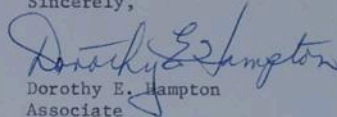 Sincerely,
Dorothy E. Hampton
Dorothy E. Hampton
Associate